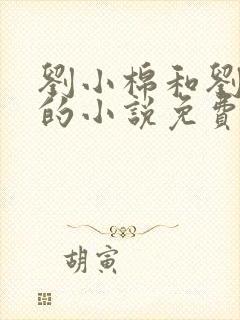 劉小棉和劉
的小說免費
胡寅